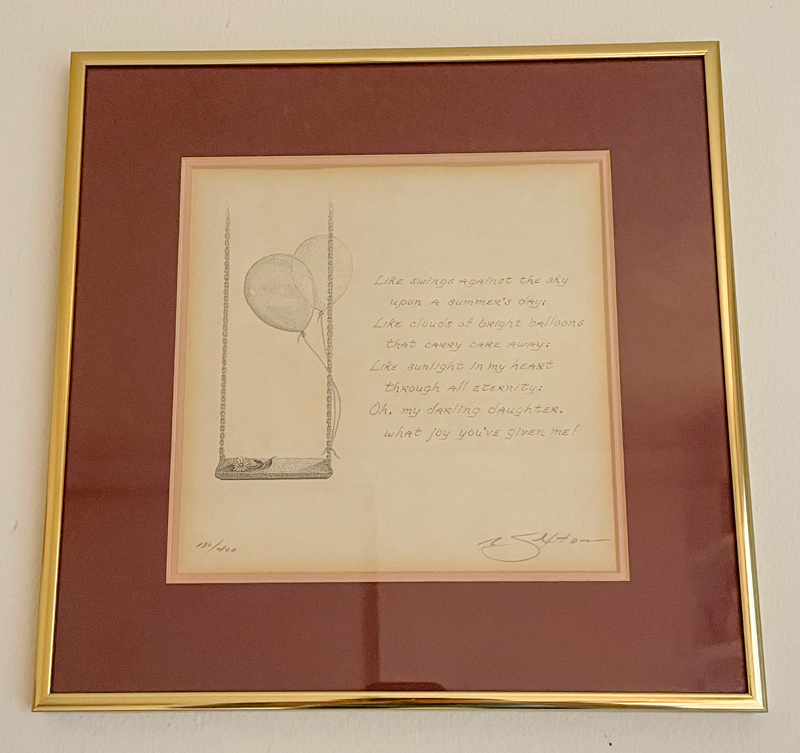 Like swings against the sky
upon a summer's day;
Like clouds of bright balloons
that carry care away;
Like sunlight in my heart
through all eternity;
Oh, my darling daughter,
what joy you've given me!
/400